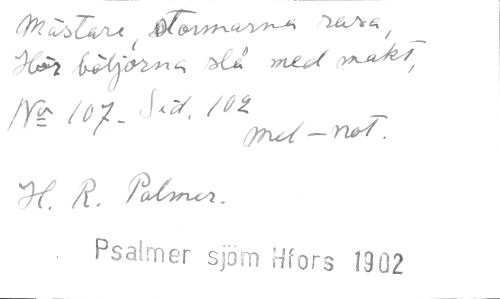 Mästare, stormarna rasa,
Hör böljorna slå med makt,
No 107. Sid. 102
mel-not.
H. R. Palmer.
Psalmer sjöm Hfors 1902